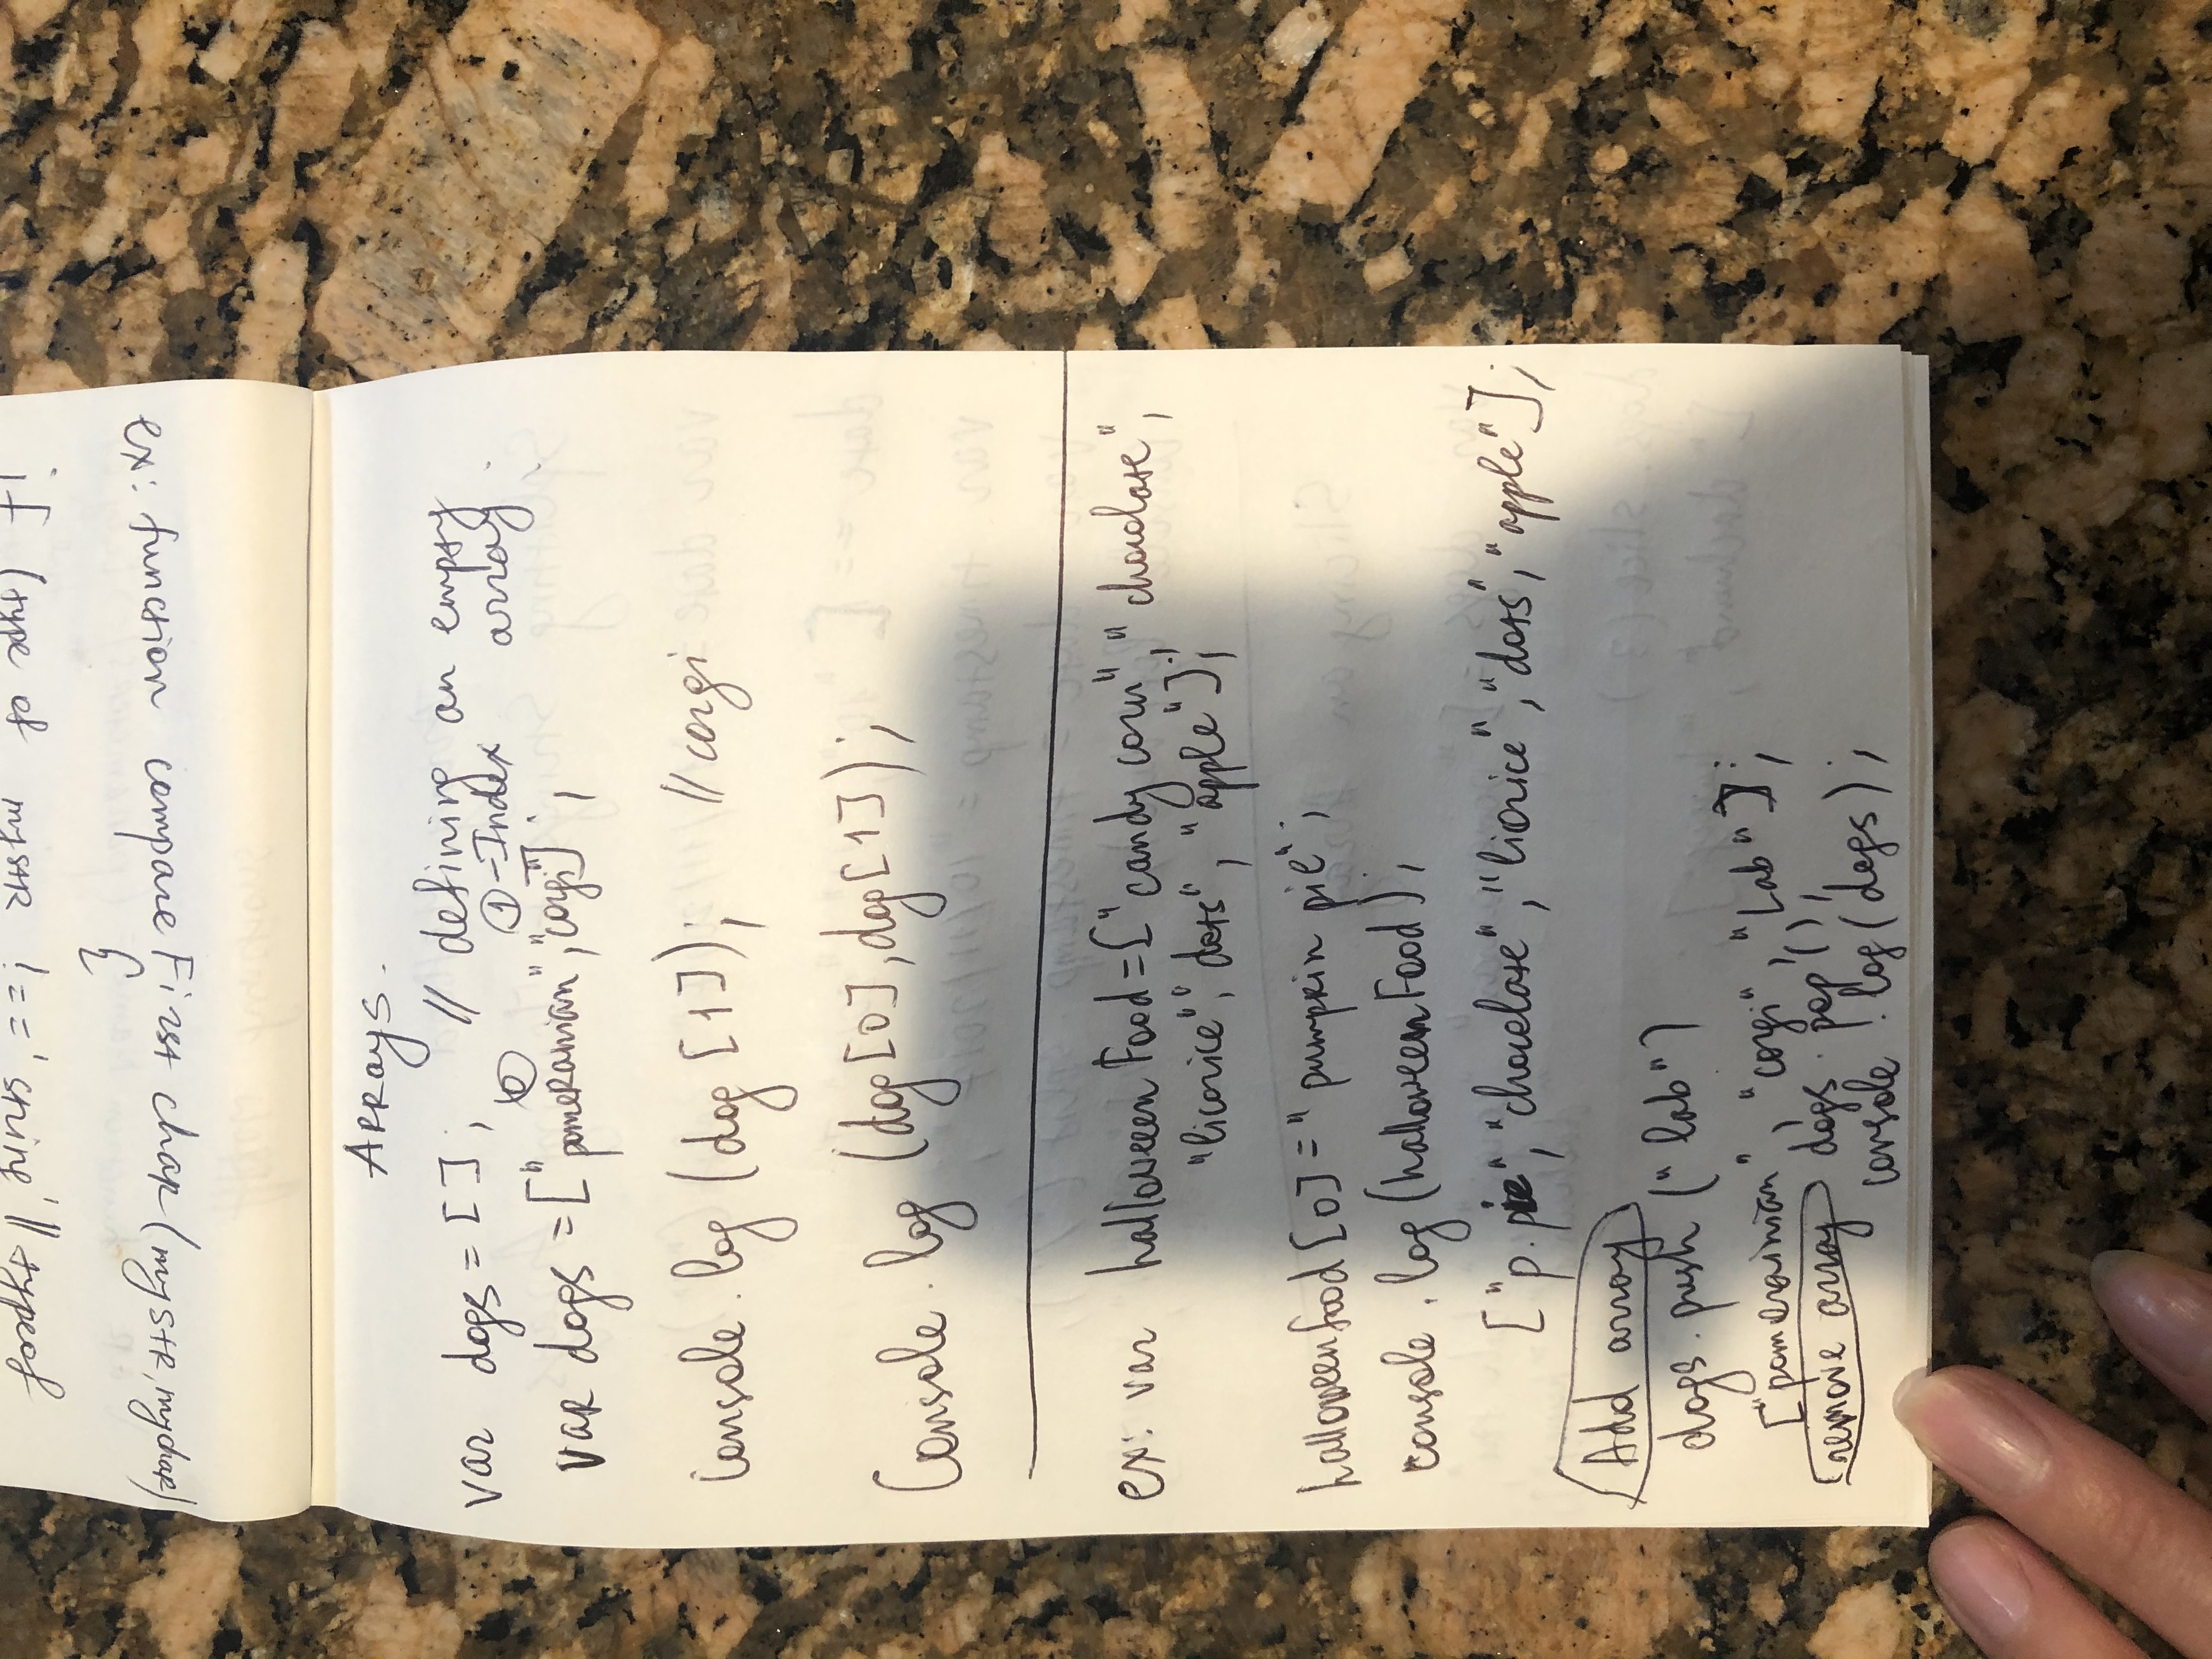 if (type of mystr !== 'string' || typeof
{
ex: function compare First char (mystr, mychar)
Arrays.
var dogs = [ ] ; // defining an empty
0 1 - Index array.
var dogs = ["pomeranian", "corgi"] ;
Console . log (dog [1]); // corgi
Console . log (dog [0], dog [1]);
ex: var halloween Food = ["candy corn", "chocolate",
"licorice", "dots", "apple"];
halloween food [0] = "pumpkin pie" ;
console . log (halloween Food) ;
["p. pie", "chocolate", "licorice", "dots", "apple"];
Add array
dogs . push ("lab")
["pomerainian", "corgi", "Lab"];
remove array dogs . pop ();
console . log (dogs) ;